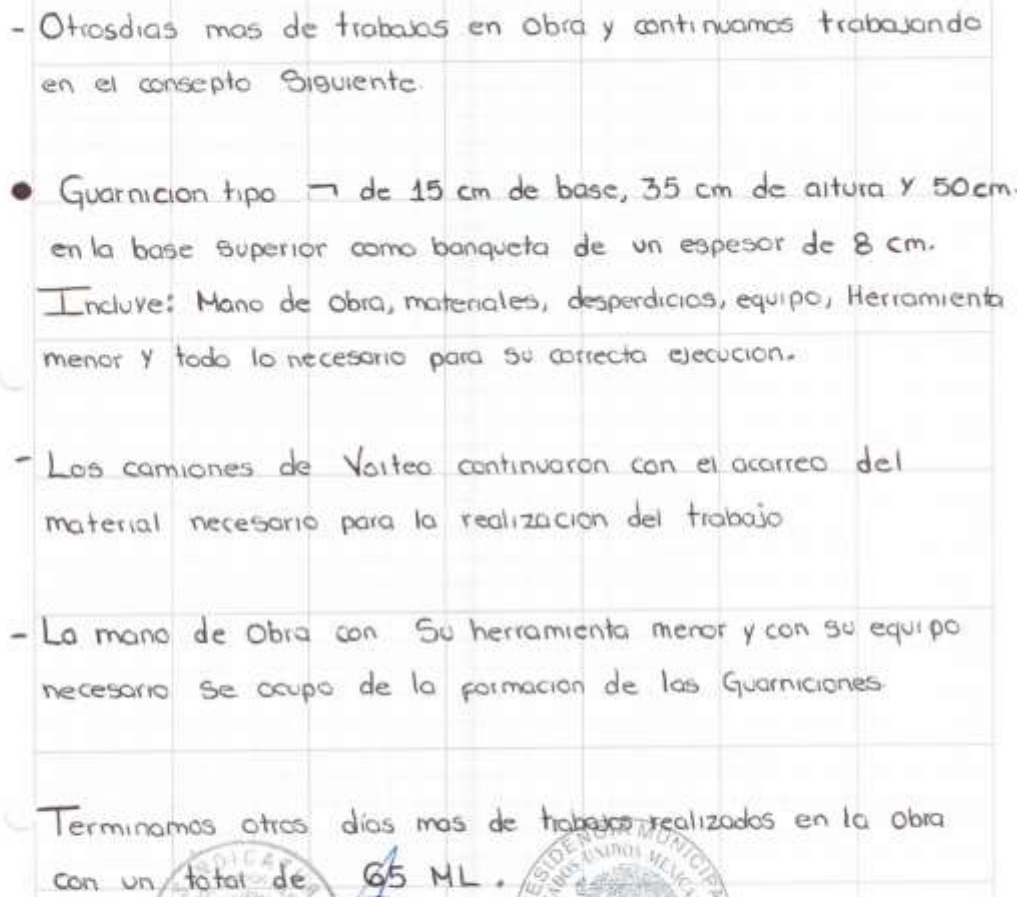 - Otrosdias mas de trabajos en obra y continuamos trabajando
en el consepto Siguiente.
• Guarnicion tipo ¬ de 15 cm de base, 35 cm de altura y 50cm.
en la base superior como banqueta de un espesor de 8 cm.
Incluye: Mano de obra, materiales, desperdicios, equipo, Herramienta
menor y todo lo necesario para su correcta ejecucion.
- Los camiones de Volteo continuaron con el acarreo del
material necesario para la realizacion del trabajo
- La mano de Obra con Su herramienta menor y con su equipo
necesario Se ocupo de la formacion de las Guarniciones.
Terminamos otros dias mas de trabajos realizados en la obra
con un total de 65 ML.
UNIDOS